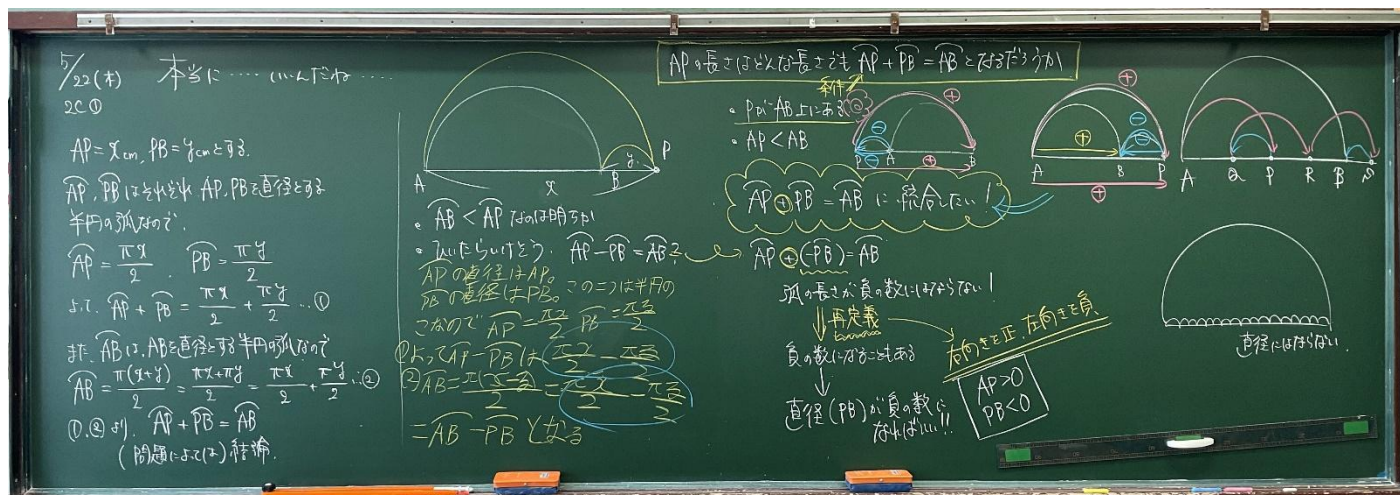 5/22(木)
本当に…… いいんだね……
2C①
AP=xcm, PB=ycmとする.
AP, PBはそれぞれ AP, PBを直径とする
半円の弧なので.
AP = πx/2 . PB = πy/2
よって AP + PB = πx/2 + πy/2 …①
また ABは, ABを直径とする半円の弧なので
AB = π(x+y)/2 = πx+πy/2 = πx/2 + πy/2 …②
①,②より. AP + PB = AB
(問題によっては)結論.
A x B y P
・AB < AP なのは明らか
・ひいたらいけそう. AP-PB = AB?
APの直径はAP。
PBの直径はPB。この二つは半円の
こなので AP = πx/2 PB = πy/2
①よってAP-PBは πx/2 - πy/2
②AB = π(x-y)/2 = πx/2 - πy/2
となる
APの長さはどんな長さでも AP + PB = AB となるだろうか
条件
・PがAB上にある
・AP<AB
P A B
⊖ ⊖ ⊕ ⊕
AP⊕PB = AB に統合したい!
AP⊕(-PB)=AB
弧の長さが負の数にはならない!
再定義
負の数になることもある
直径(PB)が負の数に
なればいい!!
右向きを正.左向きを負
AP>0
PB<0
⊕ ⊕ ⊖ ⊕
A B P
A Q P R B S
直径にはならない.